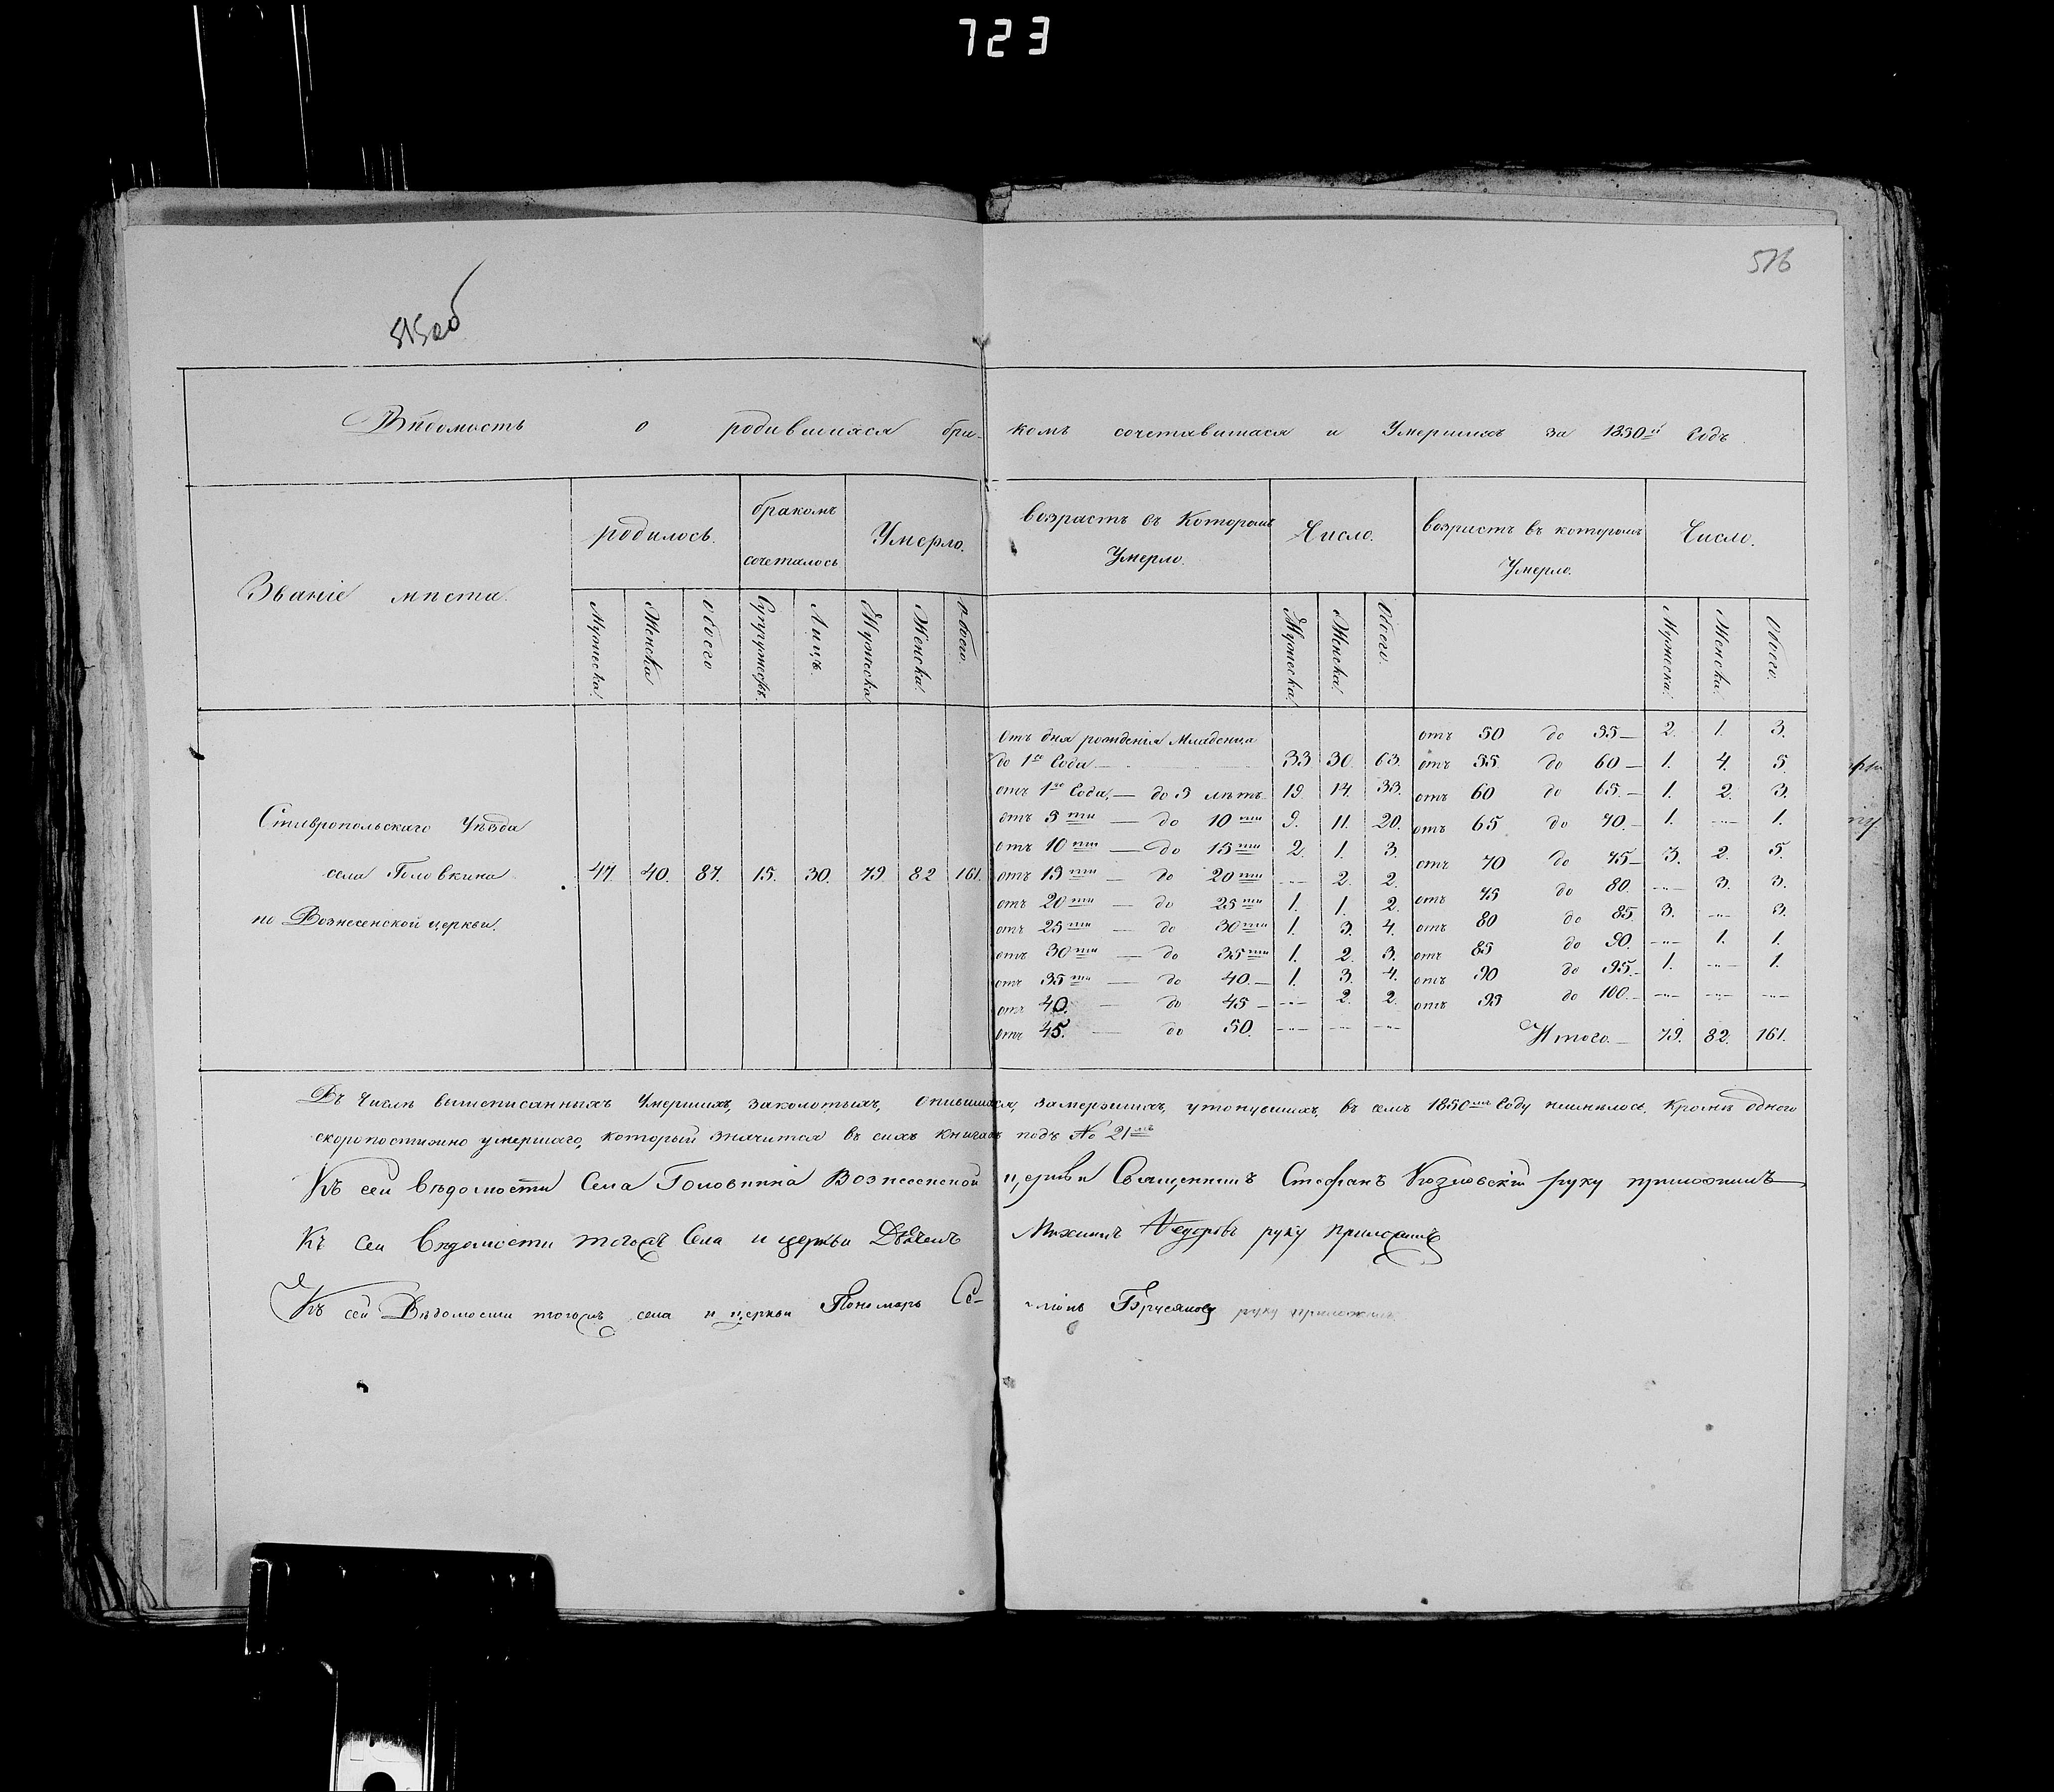 723
515об
516
Вѣдомость о родившихся бра- комъ сочетавшихся и Умершихъ за 1850й Годъ
Званіе мѣста.
родилось.
бракомъ сочеталось
Умерло.
возрастъ въ Которомъ Умерло.
Число.
возрастъ въ которомъ Умерло.
Число.
Мужеска. Женска Обоего Супружеф. Лицъ. Мужеска Женска. Обоего. Мужеска. Женска. Обоего. Мужеска. Женска. Обоего.
Ставропольскаго Уѣзда
села Головкина
по Вознесенской церкви.
47. 40. 87. 15. 30. 79. 82 161.
Отъ дня рожденія Младенца
до 1го Года — 33 30. 63.
отъ 1го Года, — до 5 лѣтъ 19. 14. 33.
отъ 5ти — до 10ти 9. 11. 20.
отъ 10ти — до 15ти 2. 1. 3.
отъ 15ти — до 20ти — 2. 2.
отъ 20ти — до 25ти 1. 1. 2.
отъ 25ти — до 30ти 1. 3. 4.
отъ 30ти — до 35ти 1. 2. 3.
отъ 35ти — до 40. — 1. 3. 4.
отъ 40. — до 45 — — 2. 2.
отъ 45. — до 50. — — —
отъ 50 до 55 — 2. 1. 3.
отъ 55 до 60 — 1. 4. 5.
отъ 60 до 65. — 1. 2. 3.
отъ 65 до 70. — 1. — 1.
отъ 70 до 75 — 3. 2. 5.
отъ 75 до 80. — 3. 3.
отъ 80 до 85 3. — 3.
отъ 85 до 90. — 1. 1.
отъ 90 до 95. — 1. — 1.
отъ 95 до 100. — — — —
Итого. — 79. 82. 161.
Въ числѣ вышеписанныхъ Умершихъ, заколотыхъ, опившихся, замерзшихъ, утонувшихъ, въ семъ 1850мъ Году неимѣлось, Кромѣ одного
скоропостижно умершаго, который значится въ сихъ книгахъ подъ № 21мъ
Къ сей вѣдомости Села Головкина Вознесенской церкви Священникъ Стефанъ Козловскій руку приложилъ
Къ сей Вѣдомости тогожъ Села и церкви Дьячекъ Михаилъ Федоровъ руку приложилъ
Къ сей Вѣдомости тогожъ села и церкви Пономарь Се- мионъ Брусяновъ руку приложилъ